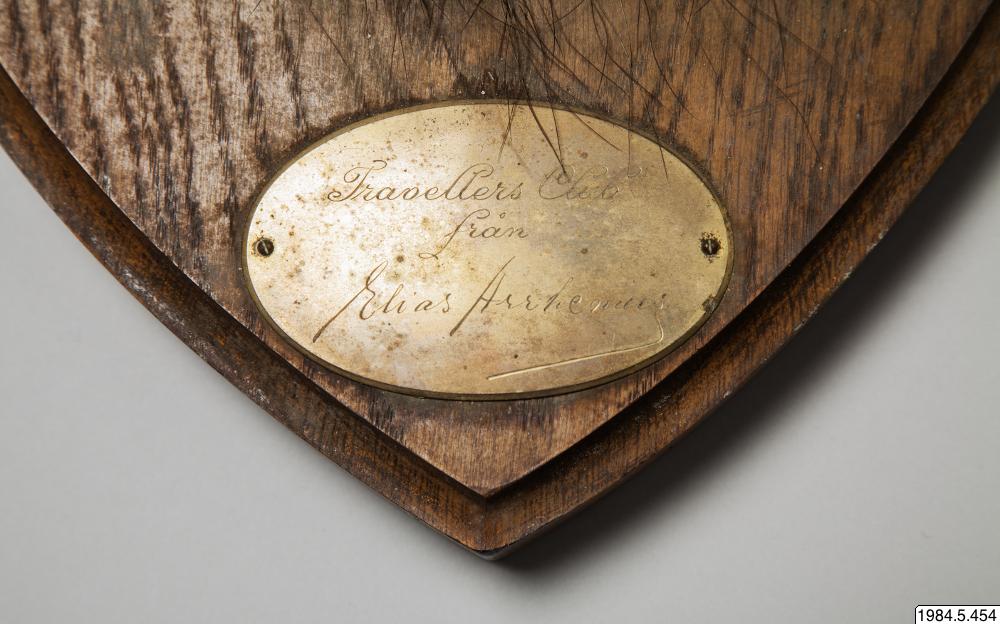 Travellers Club
från
Elias Arrhenius
1984.5.454